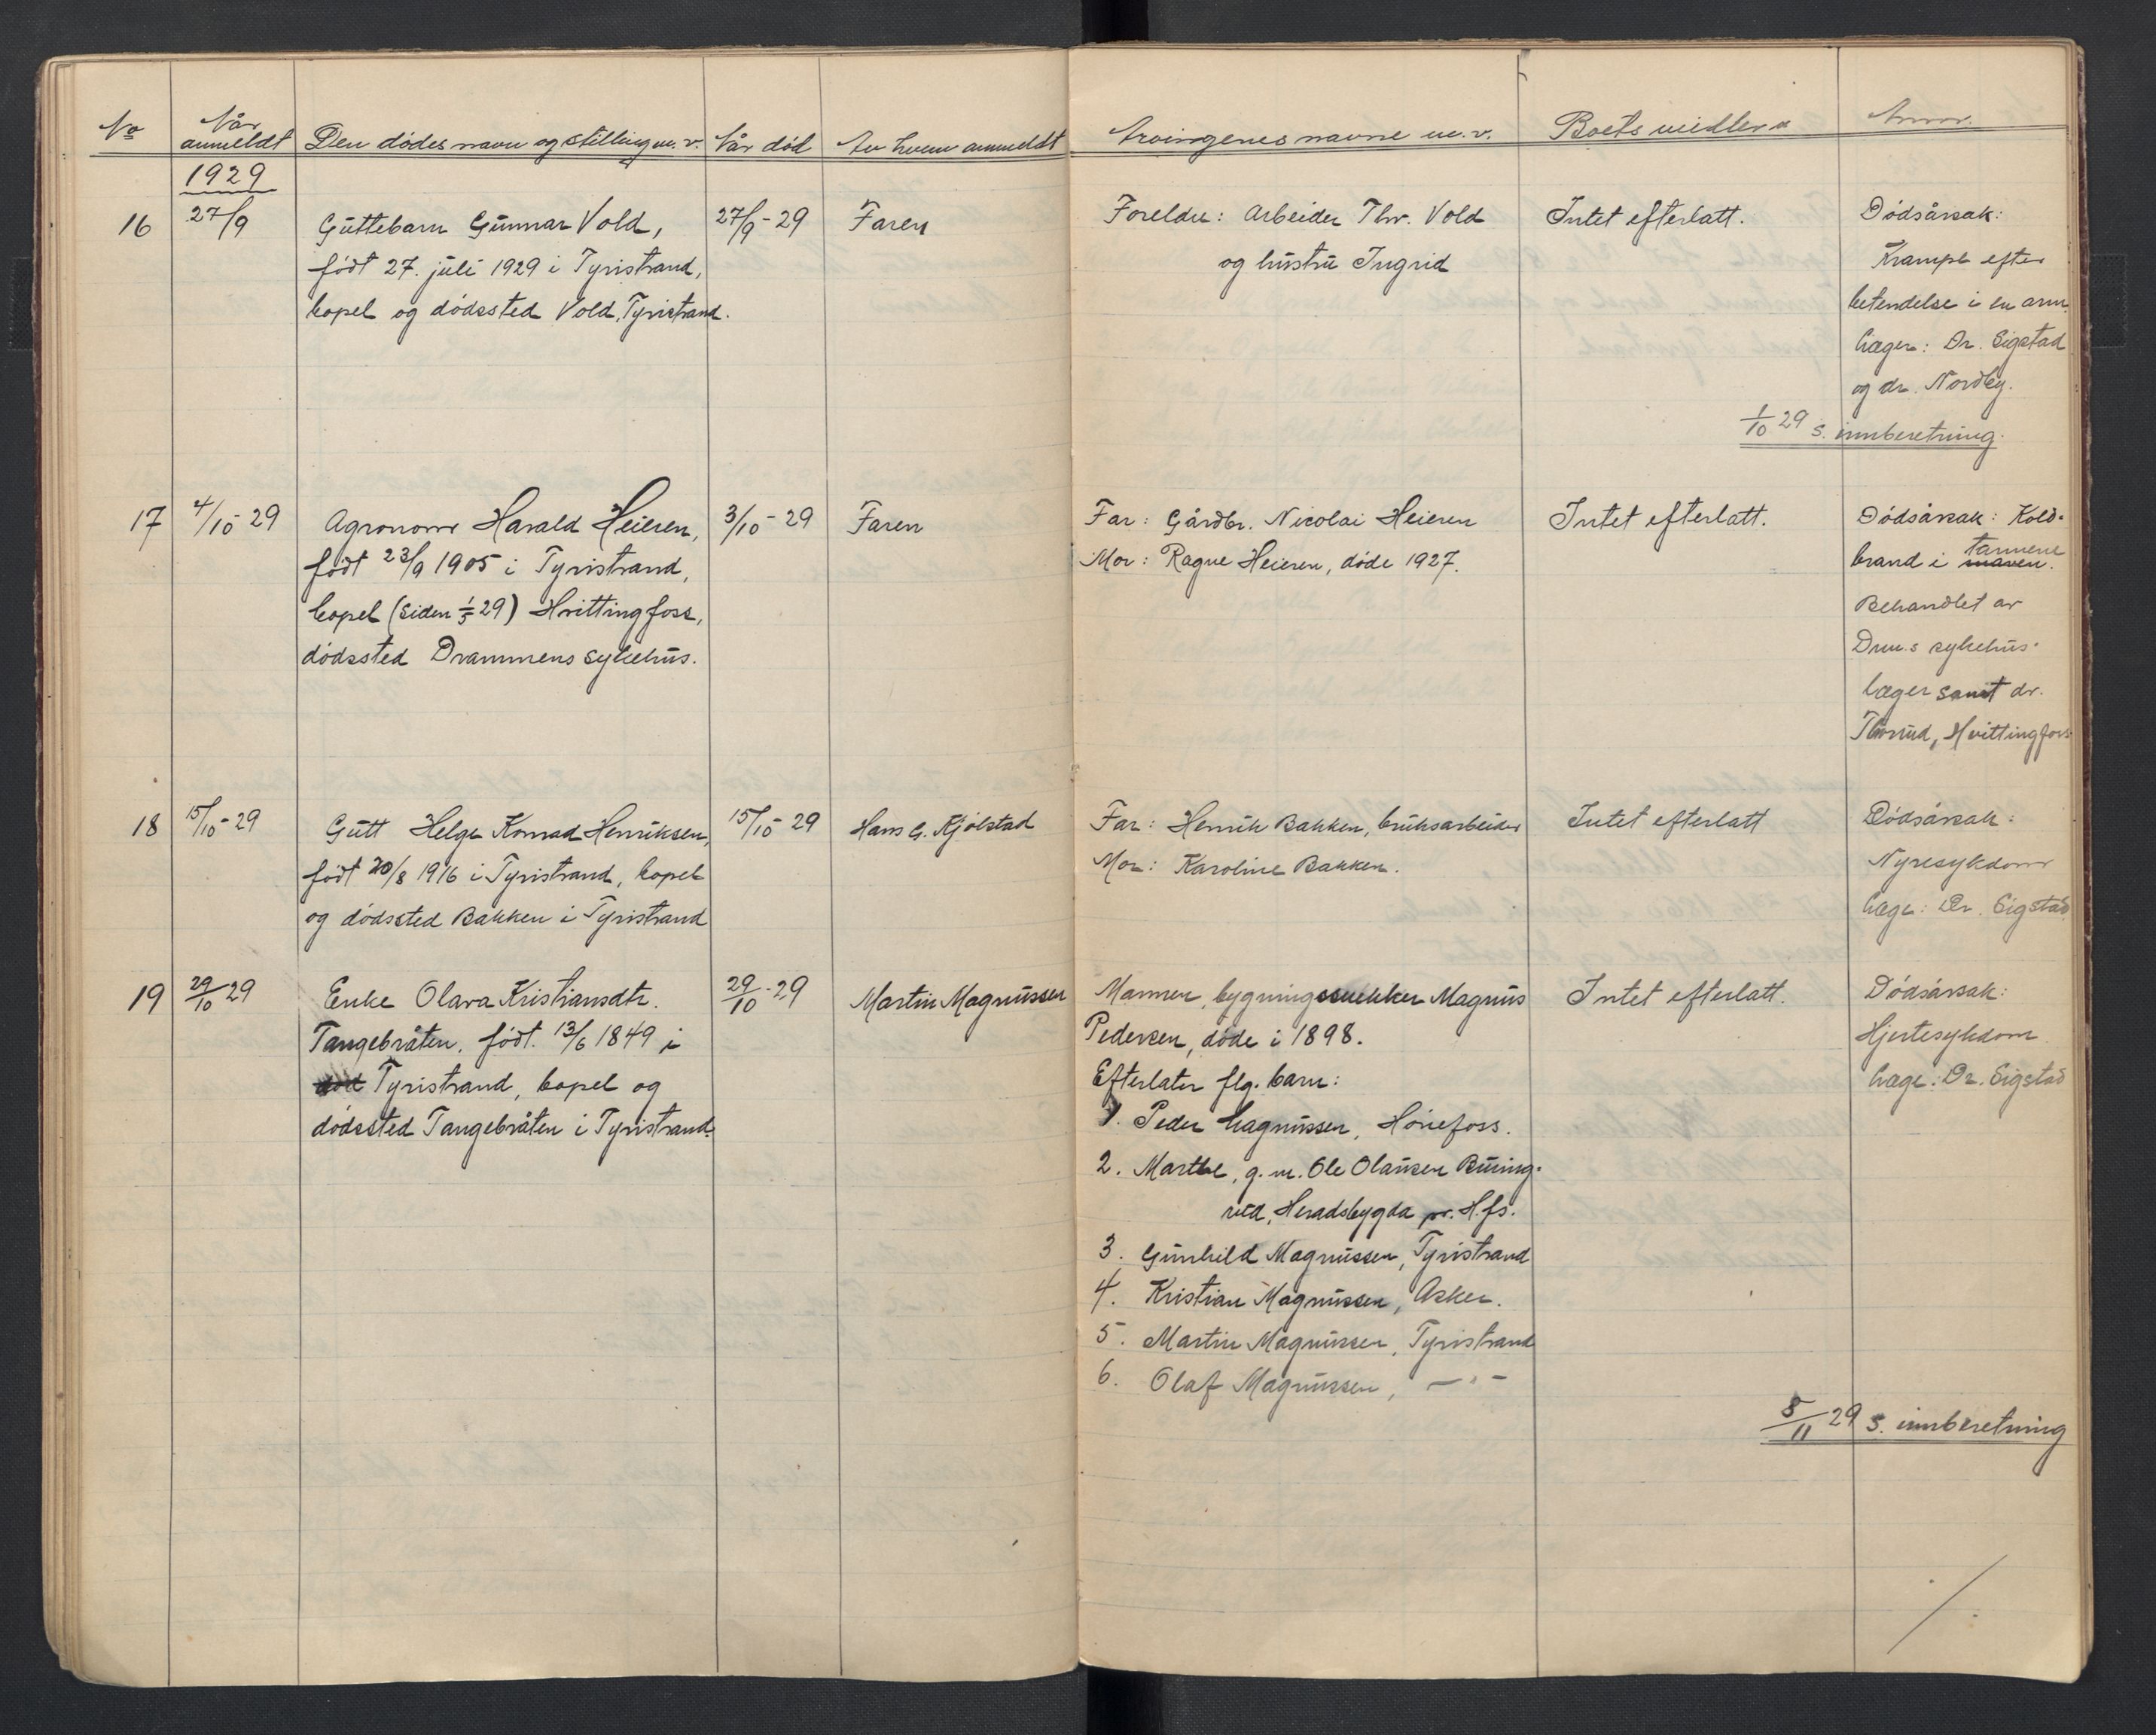 No
Når anmeldt
Den dødes navn og stilling m.v.
Når død
Av hvem anmeldt
Arvingenes navne m.v.
Boets midler
Anm.
1929
16
27/9
Guttebarn Gunnar Vold,
født 27. juli 1929 i Tyristrand,
bopel og dødssted Vold, Tyristrand.
27/9-29
Faren
Foreldre: Arbeider Thv. Vold
og hustru Ingrid
Intet efterlatt.
Dødsårsak:
Krampe efter
betendelse i en arm.
Læger: Dr. Sigstad
og dr. Nordby.
1/10 29 s. innberetning.
17
4/10-29
Agronom Harald Heieren,
født 23/9 1905 i Tyristrand,
bopel (siden 1/5 29) Hvittingfoss,
dødssted Drammens sykehus.
3/10-29
Faren
Far: Gårdbr. Nicolai Heieren
Mor: Ragne Heieren, døde 1927.
Intet efterlatt.
Dødsårsak: Kold-
brand i maven. tarmene
Behandlet av
Drm.s sykehus-
læger samt dr.
Thorud, Hvittingfoss
18
15/10-29
Gutt Helge Konrad Henriksen,
født 20/8 1916 i Tyristrand, bopel
og dødssted Bakken i Tyristrand
15/10-29
Hans G. Kjølstad
Far: Henrik Bakken, bruksarbeider
Mor: Karoline Bakken.
Intet efterlatt
Dødsårsak:
Nyresykdom
Læge: Dr. Sigstad
19
29/10 29
Enke Olava Kristiansdtr.
Tangebråten, født. 13/6 1849 i
død Tyristrand, bopel og
dødssted Tangebråten i Tyristrand.
29/10-29
Martin Magnussen
Mannen, bygningssnekker Magnus
Pedersen, døde i 1898.
Efterlater flg. barn:
1. Peder Magnussen, Hönefoss.
2. Marthe, g.m. Ole Olausen Buing-
rud, Heradsbygda pr. H.fs.
3. Gunhild Magnussen, Tyristrand
4. Kristian Magnussen, Asker.
5. Martin Magnussen, Tyristrand
6. Olaf Magnussen, —"—
Intet efterlatt.
Dødsårsak:
Hjertesykdom
Læge: Dr. Sigstad
5/11 29 s. innberetning